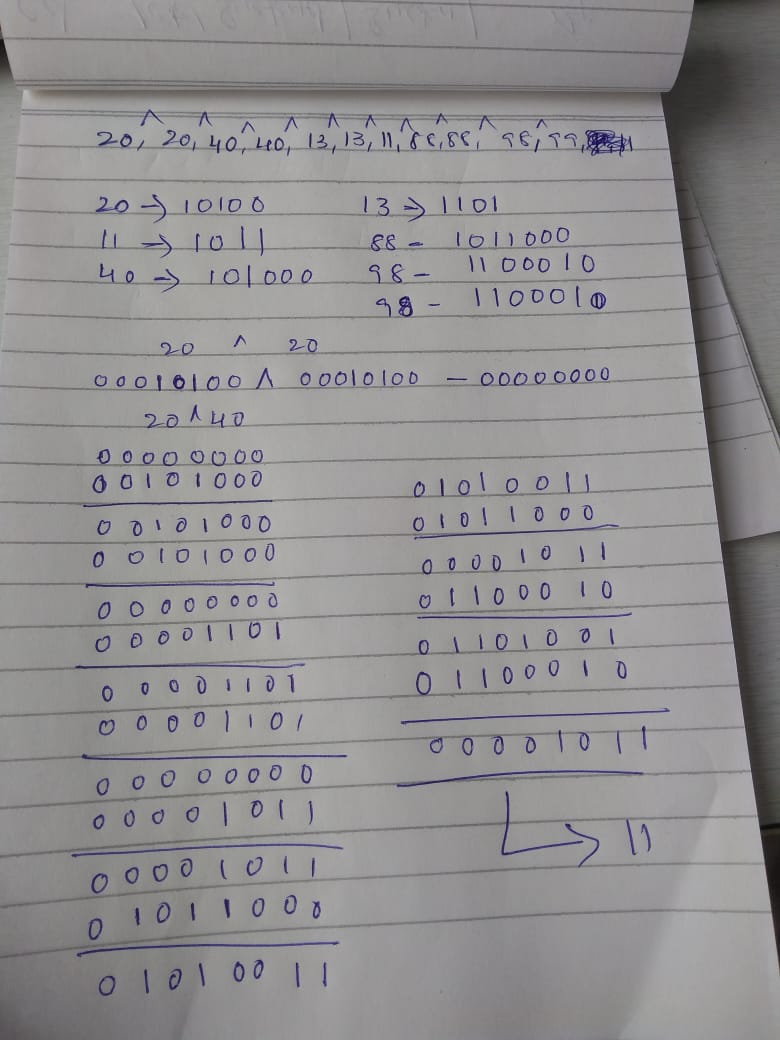 ^ ^ ^ ^ ^ ^ ^ ^ ^ ^
20, 20, 40, 40, 13, 13, 11, 88, 88, 98, 99,
20 → 10100
11 → 1011
40 → 101000
13 → 1101
88 - 1011000
98 - 1100010
98 - 1100010
20 ^ 20
00010100 ^ 00010100 - 00000000
20^40
00000000
00101000
00101000
00101000
00000000
00001101
00001101
00001101
00000000
00001011
00001011
01011000
01010011
01010011
01011000
00001011
01100010
01101001
01100010
00001011
→ 11